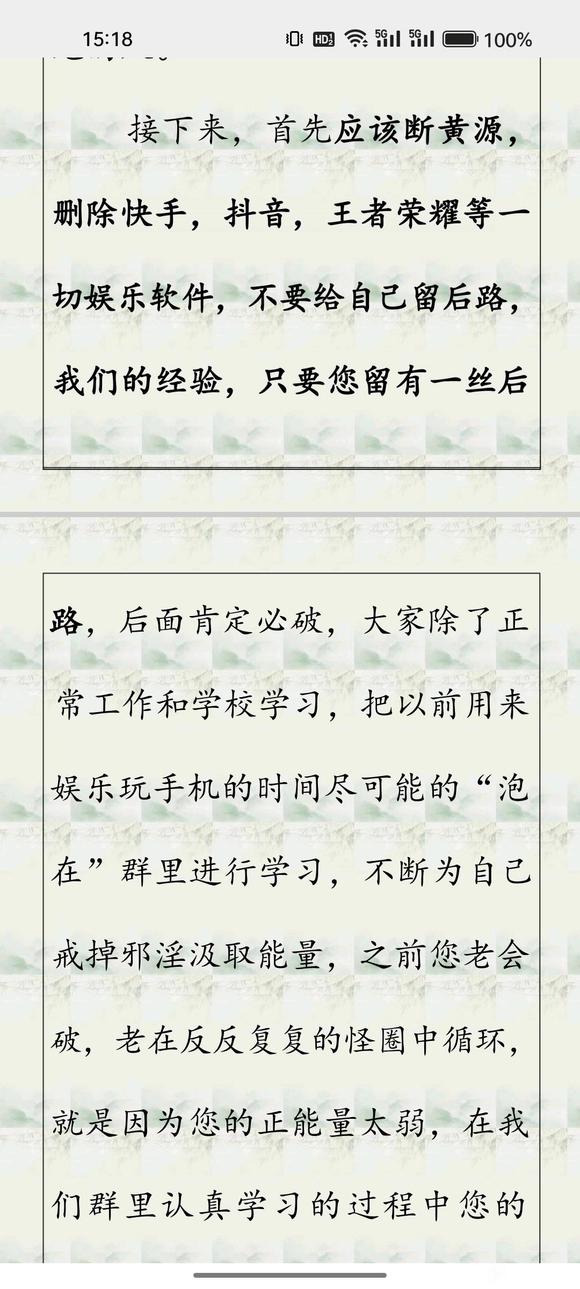 15:18
HD2 5G 5G 100%
接下来，首先应该断黄源，
删除快手，抖音，王者荣耀等一
切娱乐软件，不要给自己留后路，
我们的经验，只要您留有一丝后
路，后面肯定必破，大家除了正
常工作和学校学习，把以前用来
娱乐玩手机的时间尽可能的“泡
在”群里进行学习，不断为自己
戒掉邪淫汲取能量，之前您老会
破，老在反反复复的怪圈中循环，
就是因为您的正能量太弱，在我
们群里认真学习的过程中您的